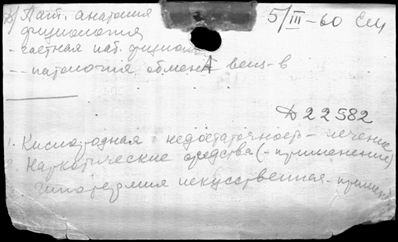 Пат. анатомия 5/III-60 Сем
физиология
- частная пат. физиол
- патология обмена вещ-в
Д22582
1. Кислородная недостаточность - лечение
2. Наркотические средства (- применение)
Гипотермия искусственная - примен